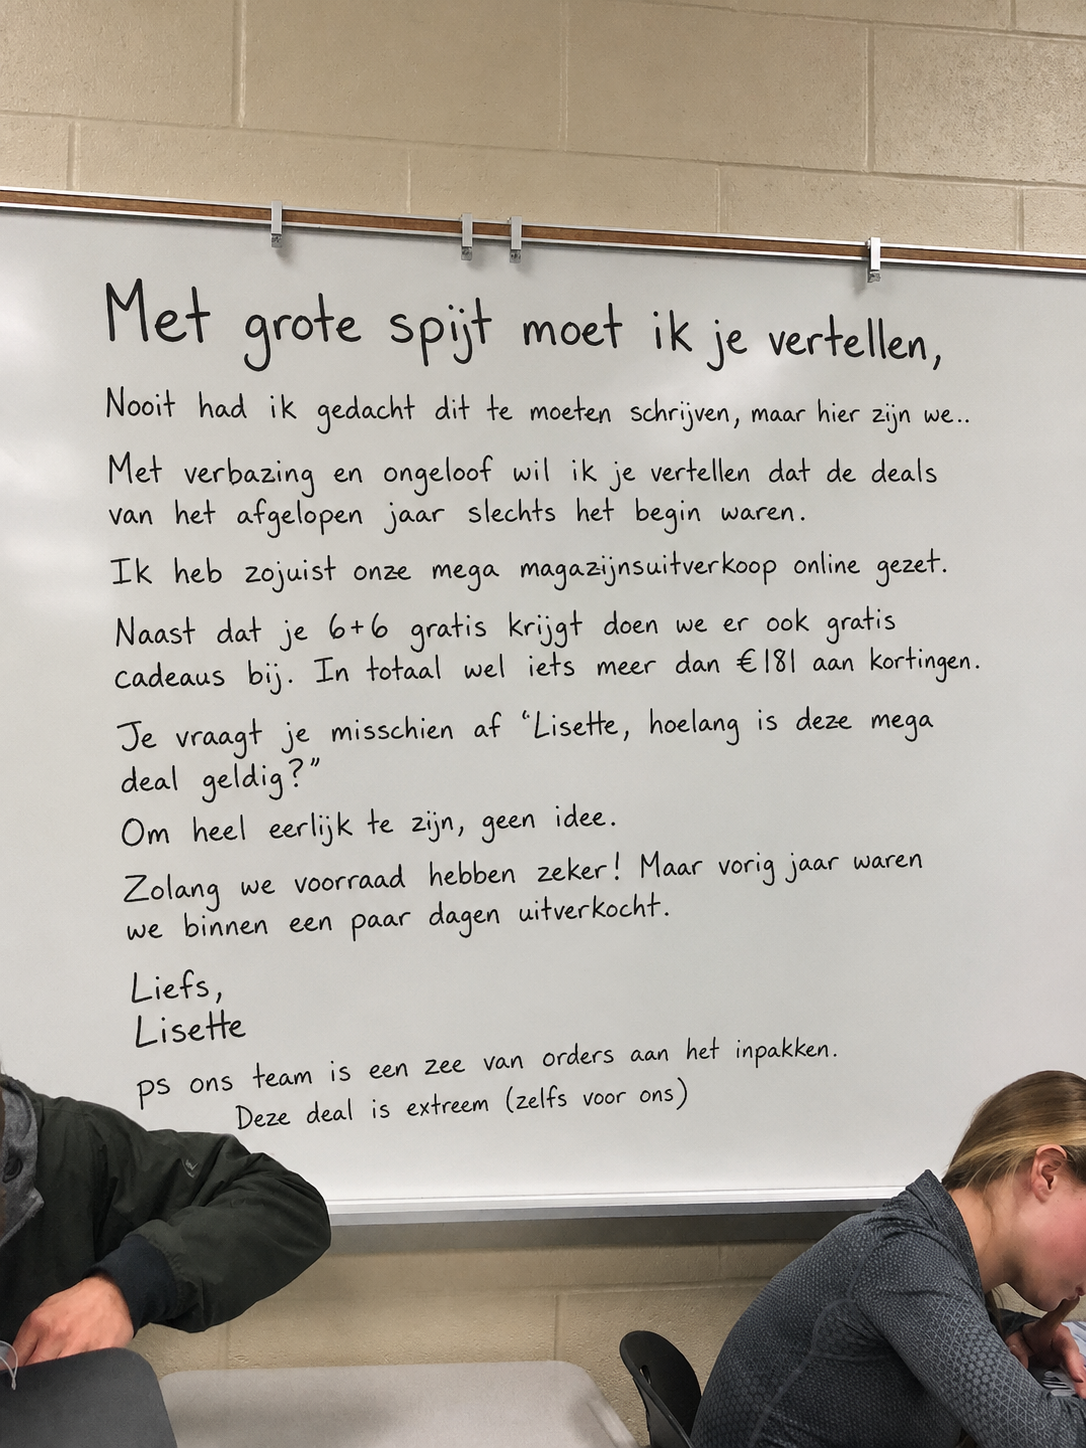 Met grote spijt moet ik je vertellen,
Nooit had ik gedacht dit te moeten schrijven, maar hier zijn we..
Met verbazing en ongeloof wil ik je vertellen dat de deals
van het afgelopen jaar slechts het begin waren.
Ik heb zojuist onze mega magazijnsuitverkoop online gezet.
Naast dat je 6+6 gratis krijgt doen we er ook gratis
cadeaus bij. In totaal wel iets meer dan €181 aan kortingen.
Je vraagt je misschien af “Lisette, hoelang is deze mega
deal geldig?”
Om heel eerlijk te zijn, geen idee.
Zolang we voorraad hebben zeker! Maar vorig jaar waren
we binnen een paar dagen uitverkocht.
Liefs,
Lisette
ps ons team is een zee van orders aan het inpakken.
Deze deal is extreem (zelfs voor ons)